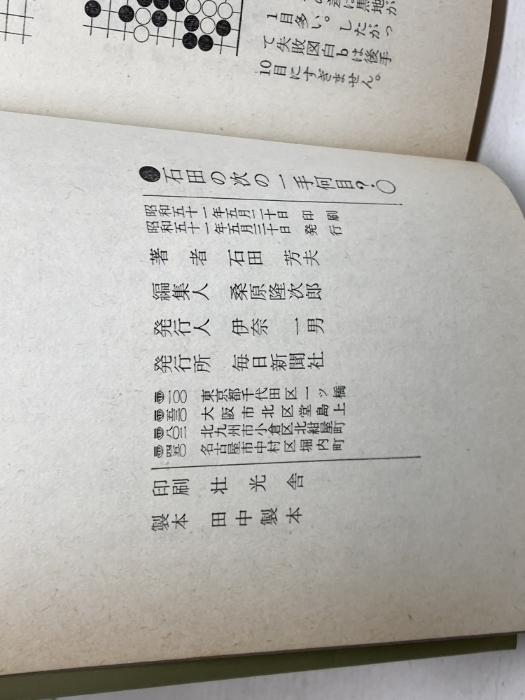 黒地が
1目多い。したがっ
て失敗図白bは後手
10目にすぎません。
●石田の次の一手何目?・○
昭和五十一年五月二十日 印刷
昭和五十一年五月三十日 発行
著者 石田芳夫
編集人 桑原隆次郎
発行人 伊奈一男
発行所 毎日新聞社
〶一〇〇 東京都千代田区一ツ橋
〶五三〇 大阪市北区堂島上
〶八〇二 北九州市小倉区北紺屋町
〶四五〇 名古屋市中村区堀内町
印刷 壮光舎
製本 田中製本